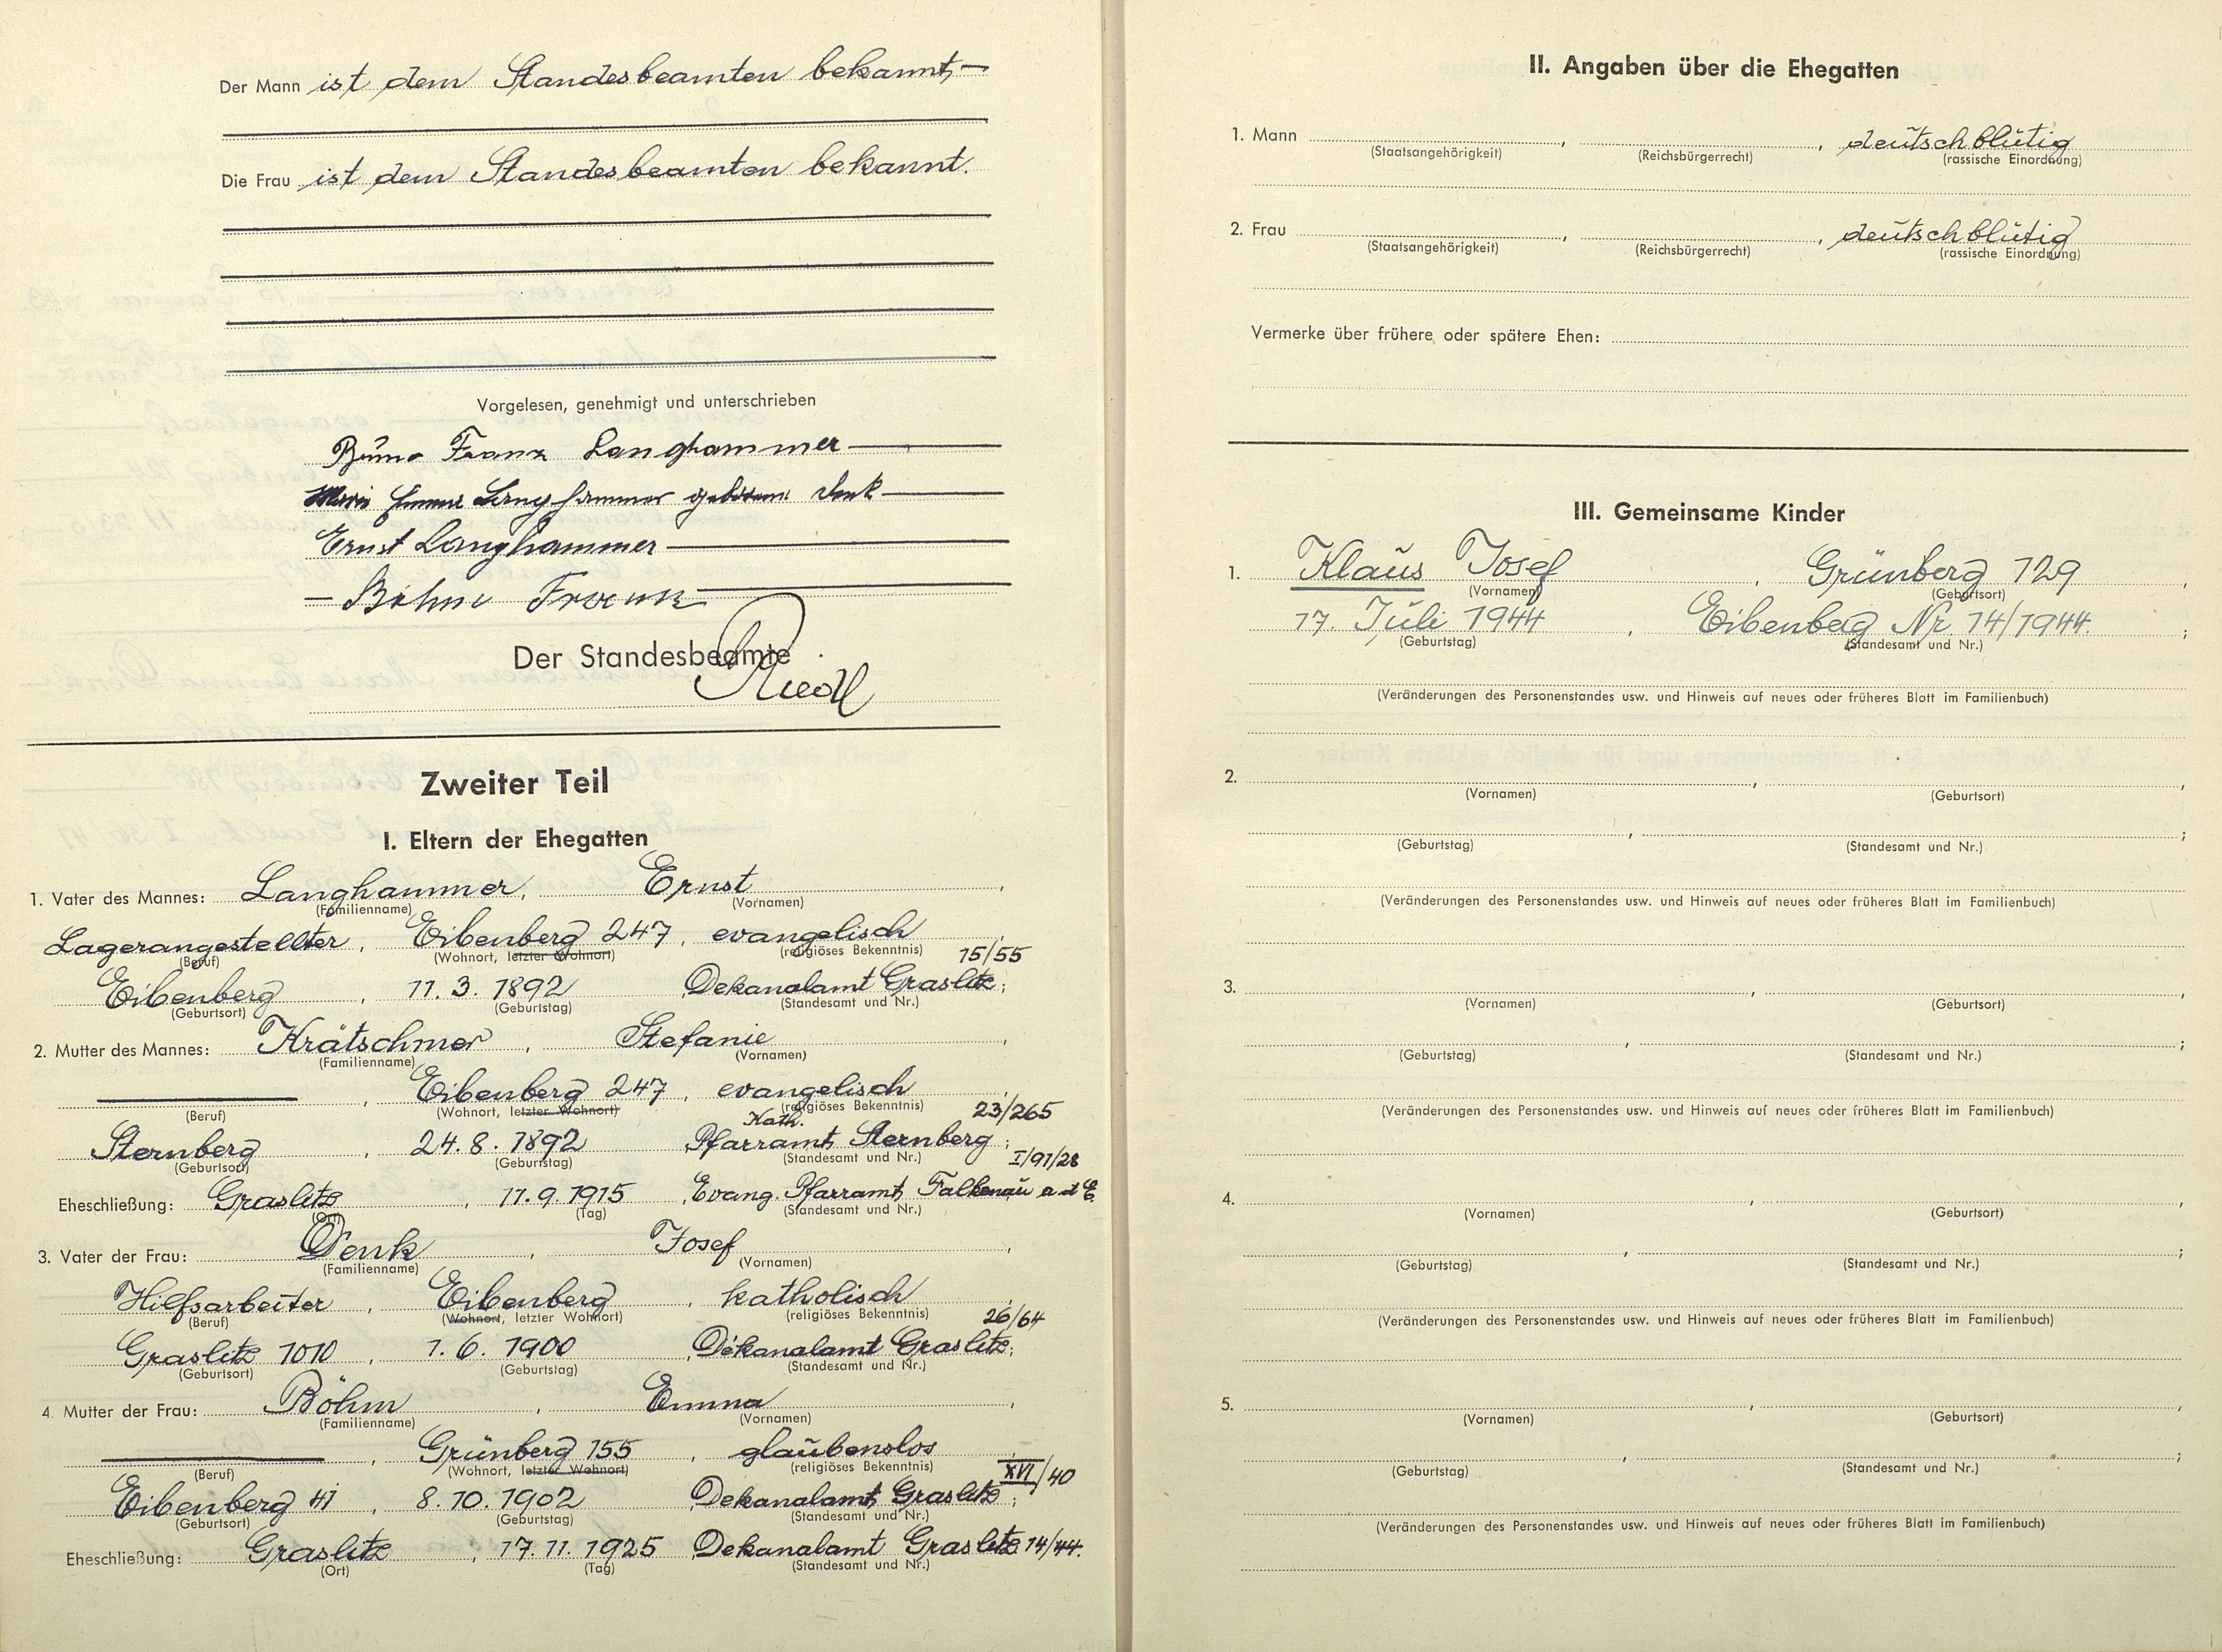 Der Mann ist dem Standesbeamten bekannt, —
Die Frau ist dem Standesbeamten bekannt.
Vorgelesen, genehmigt und unterschrieben
Bruno Franz Langhammer
Marie Emma Langhammer geborene Denk
Ernst Langhammer
Böhm Frank
Der Standesbeamte
Riedl
Zweiter Teil
I. Eltern der Ehegatten
1. Vater des Mannes: Langhammer, Ernst,
(Familienname) (Vornamen)
Lagerangestellter, Eibenberg 247, evangelisch,
(Beruf) (Wohnort, letzter Wohnort) (religiöses Bekenntnis) 15/55
Eibenberg, 11. 3. 1892 Dekanalamt Graslitz;
(Geburtsort) (Geburtstag) (Standesamt und Nr.)
2. Mutter des Mannes: Krätschmer, Stefanie,
(Familienname) (Vornamen)
, Eibenberg 247, evangelisch,
(Beruf) (Wohnort, letzter Wohnort) (religiöses Bekenntnis) 23/265
Kath.
Sternberg, 24. 8. 1892 Pfarramt Sternberg;
(Geburtsort) (Geburtstag) (Standesamt und Nr.) I/91/28
Eheschließung: Graslitz, 11. 9. 1915, Evang. Pfarramt Falkenau a d E.
(Ort) (Tag) (Standesamt und Nr.)
3. Vater der Frau: Denk, Josef,
(Familienname) (Vornamen)
Hilfsarbeiter, Eibenberg, katholisch,
(Beruf) (Wohnort, letzter Wohnort) (religiöses Bekenntnis) 26/64
Graslitz 1010, 1. 6. 1900, Dekanalamt Graslitz;
(Geburtsort) (Geburtstag) (Standesamt und Nr.)
4. Mutter der Frau: Böhm, Emma,
(Familienname) (Vornamen)
, Grünberg 155, glaubenslos,
(Beruf) (Wohnort, letzter Wohnort) (religiöses Bekenntnis) XVI/40
Eibenberg 41, 8. 10. 1902, Dekanalamt Graslitz;
(Geburtsort) (Geburtstag) (Standesamt und Nr.)
Eheschließung: Graslitz, 17. 11. 1925 Dekanalamt Graslitz 14/44.
(Ort) (Tag) (Standesamt und Nr.)
II. Angaben über die Ehegatten
1. Mann , , deutschblütig
(Staatsangehörigkeit) (Reichsbürgerrecht) (rassische Einordnung)
2. Frau , , deutschblütig
(Staatsangehörigkeit) (Reichsbürgerrecht) (rassische Einordnung)
Vermerke über frühere oder spätere Ehen:
III. Gemeinsame Kinder
1. Klaus Josef, Grünberg 129,
(Vornamen) (Geburtsort)
17. Juli 1944, Eibenbeg Nr. 14/1944.;
(Geburtstag) (Standesamt und Nr.)
(Veränderungen des Personenstandes usw. und Hinweis auf neues oder früheres Blatt im Familienbuch)
2. , ,
(Vornamen) (Geburtsort)
, ;
(Geburtstag) (Standesamt und Nr.)
(Veränderungen des Personenstandes usw. und Hinweis auf neues oder früheres Blatt im Familienbuch)
3. , ,
(Vornamen) (Geburtsort)
, ;
(Geburtstag) (Standesamt und Nr.)
(Veränderungen des Personenstandes usw. und Hinweis auf neues oder früheres Blatt im Familienbuch)
4. , ,
(Vornamen) (Geburtsort)
, ;
(Geburtstag) (Standesamt und Nr.)
(Veränderungen des Personenstandes usw. und Hinweis auf neues oder früheres Blatt im Familienbuch)
5. , ,
(Vornamen) (Geburtsort)
, ;
(Geburtstag) (Standesamt und Nr.)
(Veränderungen des Personenstandes usw. und Hinweis auf neues oder früheres Blatt im Familienbuch)